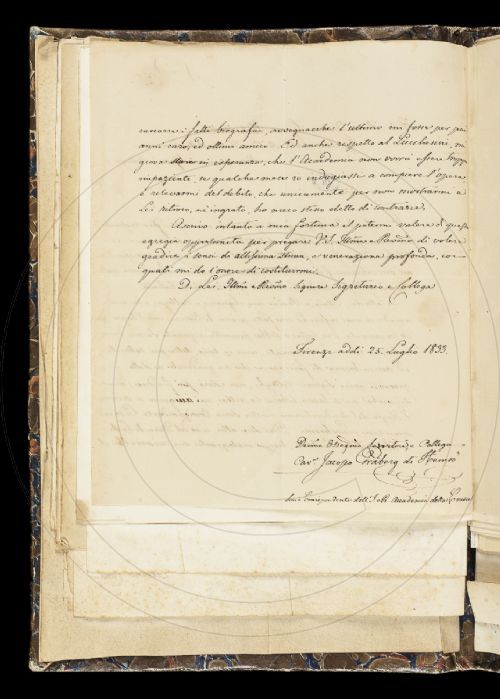 cenare i fatti biografici, avvegnacche l'ultimo mi fosse per più
anni caro, ed ottimo amico. Ed anche rispetto al Lucchesini, mi
giova stare in esperanza, che l'Accademia non vorrà essere troppo
impaziente, se qualche mese io indugiassi a compiere l'opera
e rilevarmi del debito, che unicamente per non mostrarmi a
Lei retiroso, nè ingrato, ho meco stesso eletto di contrarre.
Ascrivo intanto a mea fortuna il potermi valere di questa
egregia opportunità per pregare V. S. Illma e Revma di voler
gradire i sensi di altissima stima, e venerazione profonda, con
quali mi do l'onore di costituirmi
D. Lei Illmo e Revmo Signore Segretario e Collega
Firenze addì 25. Luglio 1833.
Devmo Obbligmo Servitore e Collega
Cavr. Jacopo Gråberg di Hemsö
Socio Corrispondente dell'I. e R. Accademia della Crusca